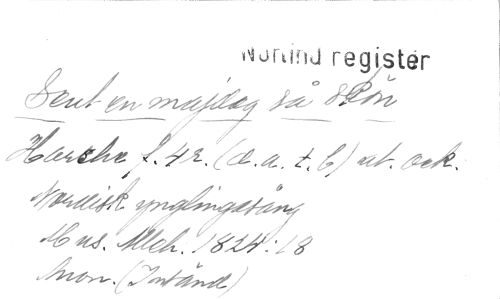 Norlind register
Sent en majdag så skön
Haeske f. 4 r. (d. a. t. b) ut. ork.
Nordisk ynglingasång
Mus. Mbch. 1824:18
Anon. (Intånd)